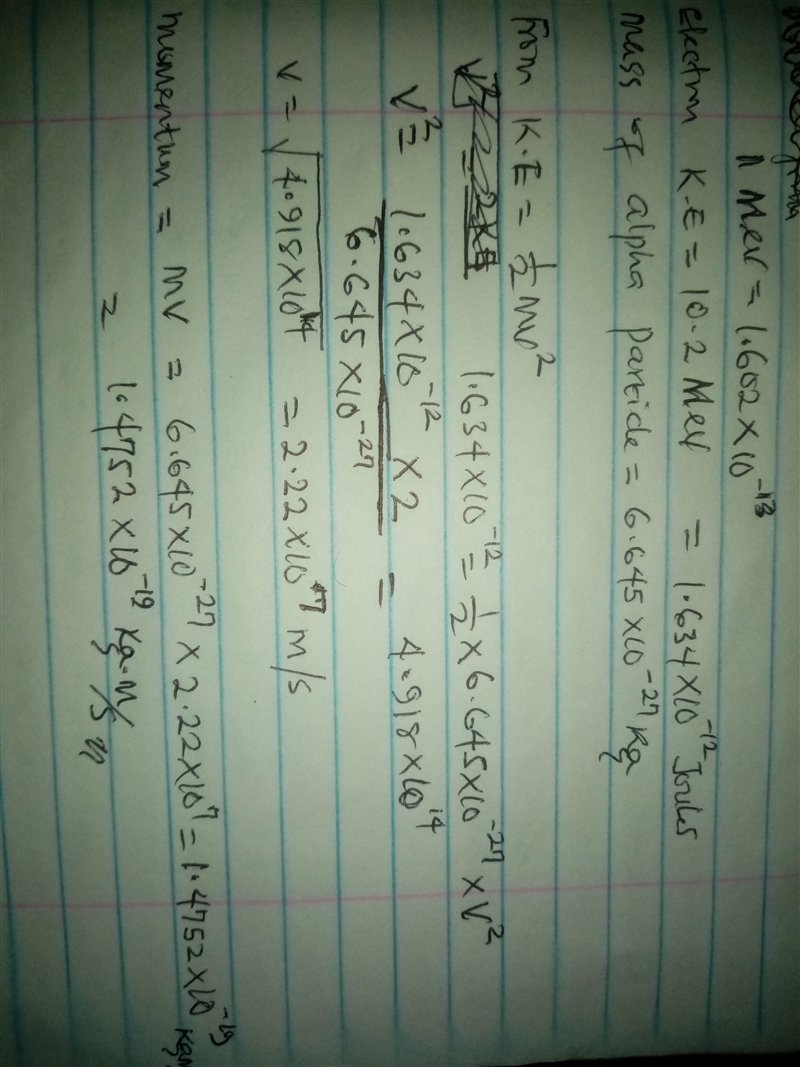 1 Mev = 1.602 × 10⁻¹³
Electron K.E = 10.2 Mev = 1.634 × 10⁻¹² Joules
mass of alpha particle = 6.645 × 10⁻²⁷ Kg
From K.E = ½ mv²
1.634 × 10⁻¹² = ½ × 6.645 × 10⁻²⁷ × V²
V² = 1.634 × 10⁻¹² × 2 / 6.645 × 10⁻²⁷ = 4.918 × 10¹⁴
V = √4.918 × 10¹⁴ = 2.22 × 10⁷ m/s
momentum = MV = 6.645 × 10⁻²⁷ × 2.22 × 10⁷ = 1.4752 × 10⁻¹⁹
= 1.4752 × 10⁻¹⁹ Kg.m/s